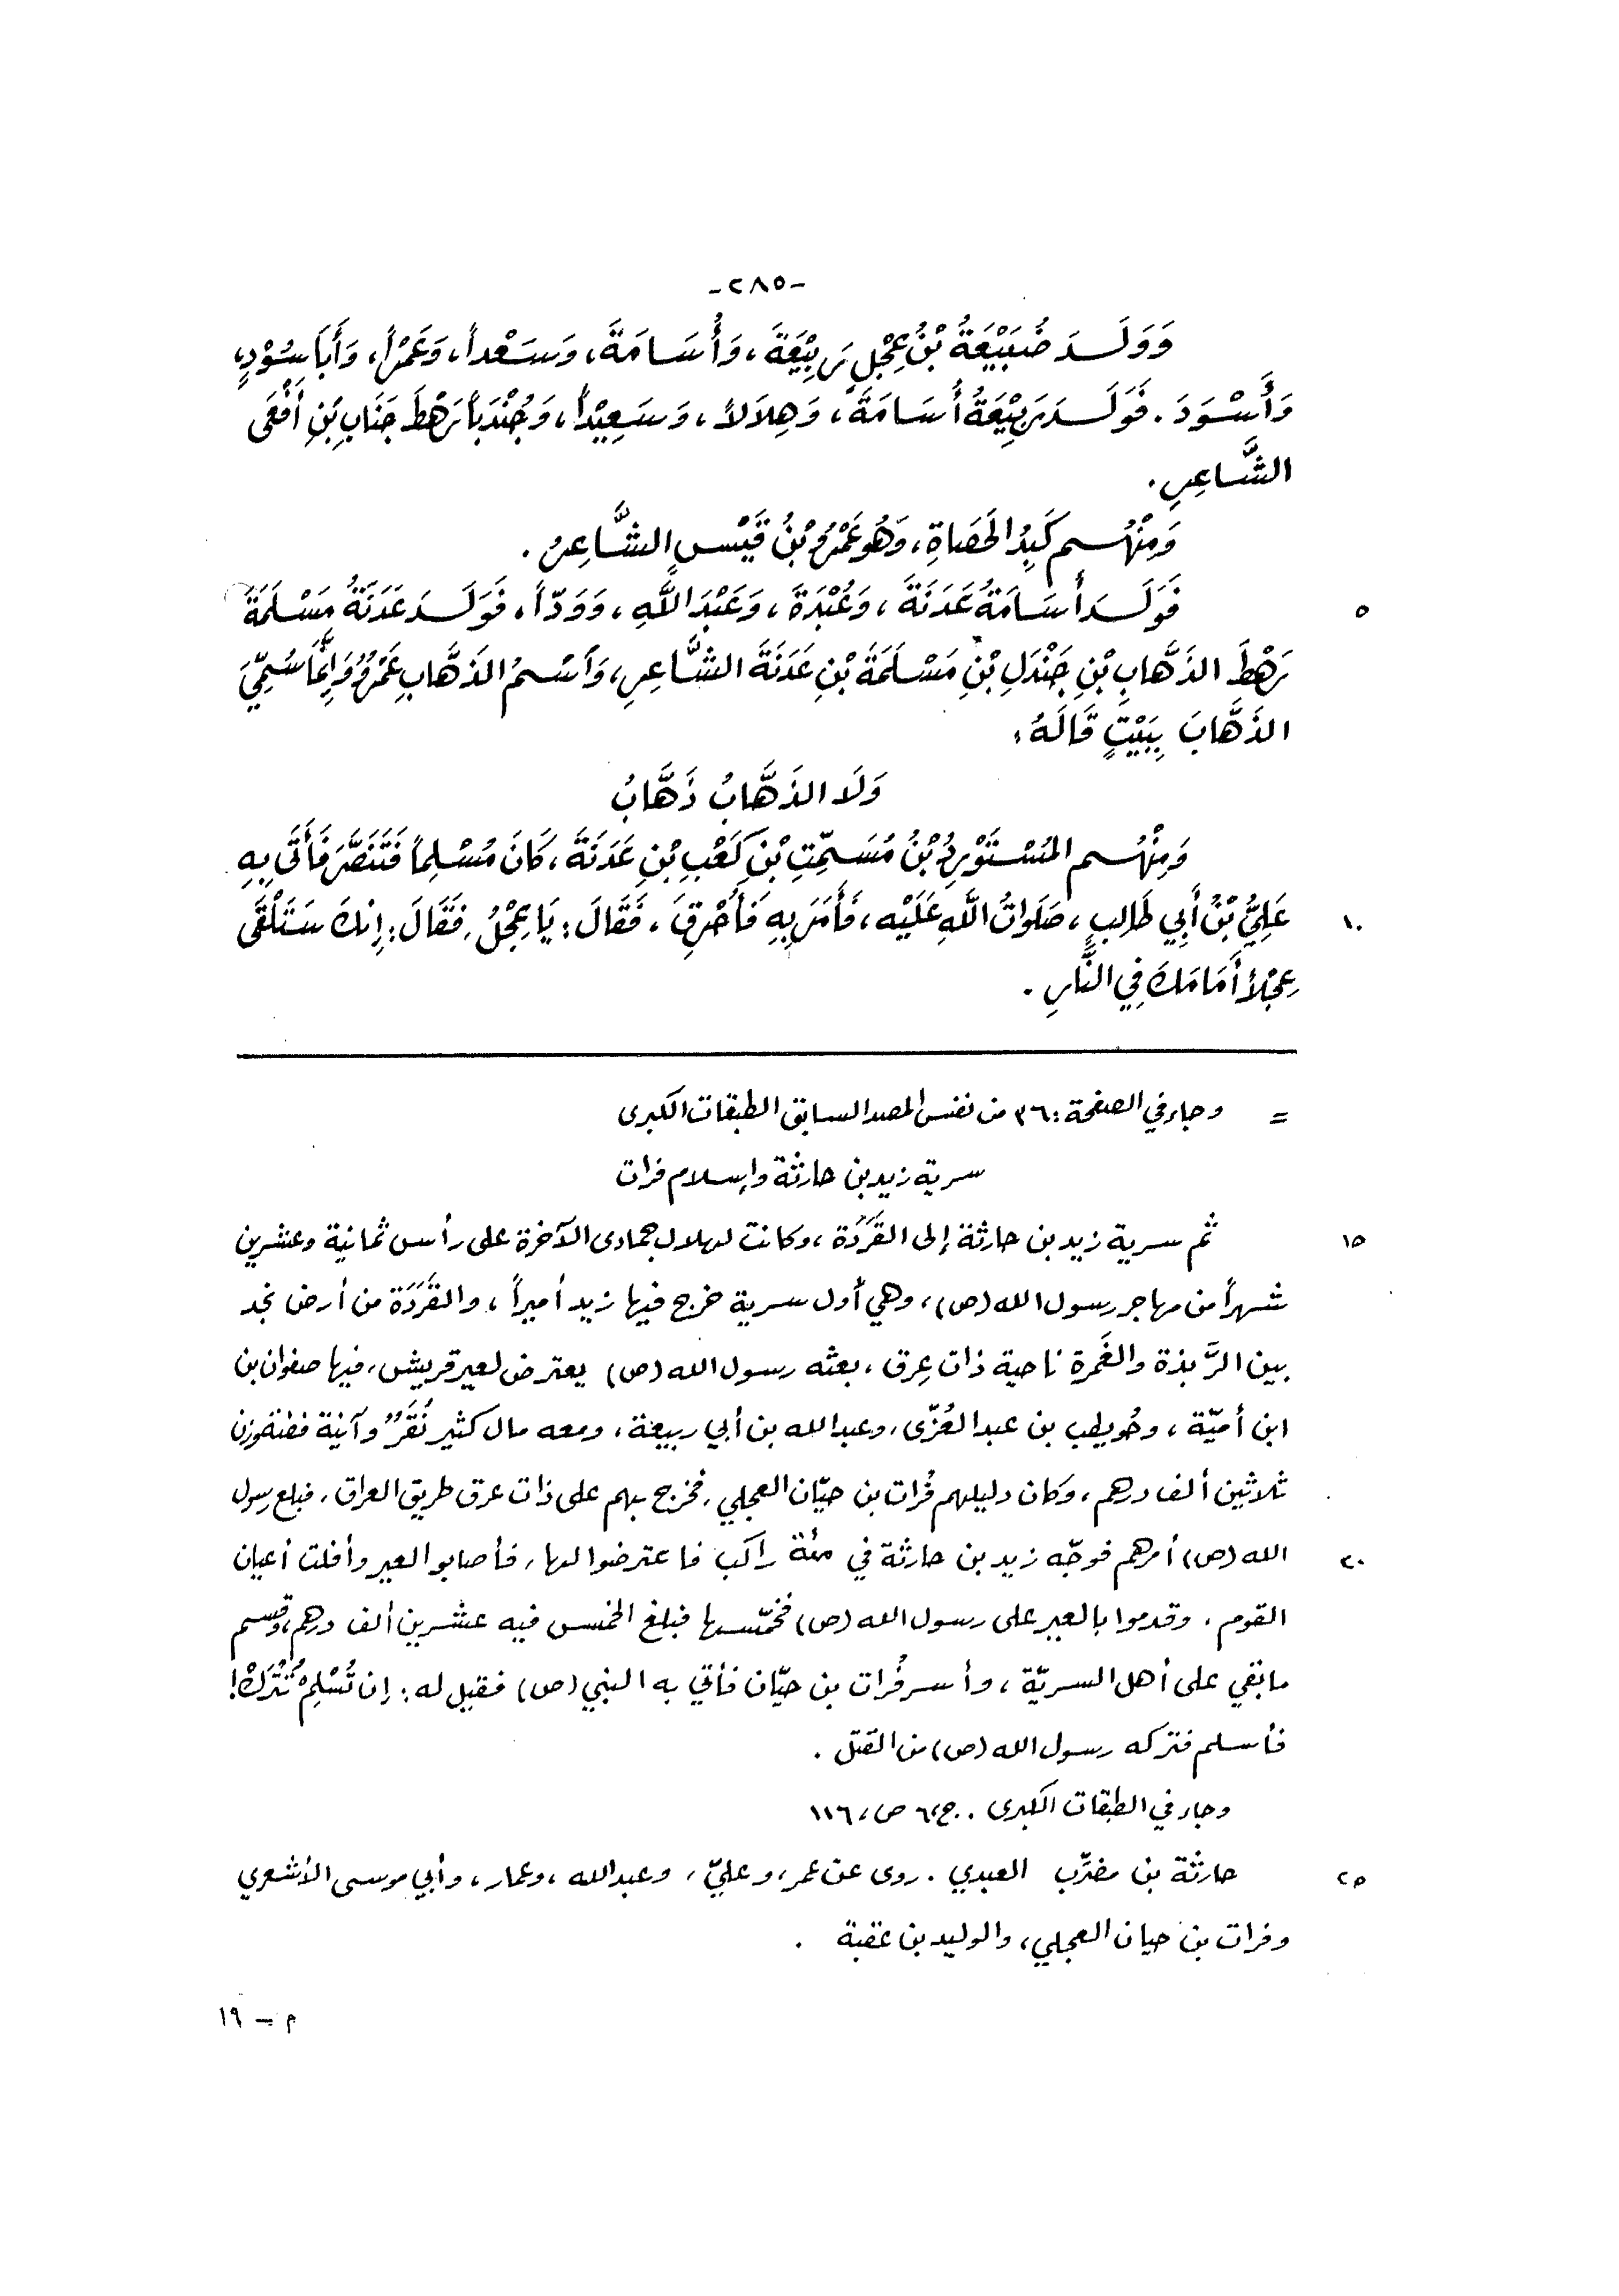 -٢٨٥-
وَوَلَـدَ ضُبَيْعَةُ بْنُ عِجْلٍ رَبِيْعَةَ، وَأُسَامَةَ، وَسَعْداً، وَعَمْراً، وَأَبَا سُوْدٍ،
وَأَسْوَدَ. فَوَلَـدَ رَبِيْعَةُ أُسَامَةَ، وَهِلَالاً، وَسَعِيْداً، وَجُنْدَباً رَهْطَ جَنَابِ بْنِ أَفْعَى
الشَّاعِرِ.
وَمِنْهُـم كَبِدُ الحَصَاةِ، وَهُوَ عَمْرُو بْنُ قَيْسٍ الشَّاعِرُ.
٥ فَوَلَـدَ أُسَامَةُ عَدَنَةَ، وَعُبْدَةَ، وَعَبْدَ اللَّهِ، وَوَدّاً، فَوَلَـدَ عَدَنَةُ مَسْلَمَةَ
رَهْطَ الذَهَّابِ بْنِ جَنْدَلِ بْنِ مَسْلَمَةَ بْنِ عَدَنَةَ الشَّاعِرِ، وَاسْمُ الذَهَّابِ عَمْرُو وَإِنَّمَا سُمِّيَ
الذَهَّابَ بِبَيْتٍ قَالَهُ:
وَلَا الذَهَّابُ ذَهَّابُ
وَمِنْهُـم المُسْتَوْرِدُ بْنُ مُسَمِّتِ بْنِ كَعْبِ بْنِ عَدَنَةَ، كَانَ مُسْلِماً فَتَنَصَّرَ فَأَتَى بِهِ
١٠ عَلِيُّ بْنُ أَبِي طَالِبٍ، صَلَوَاتُ اللَّهِ عَلَيْه، فَأَمَرَ بِهِ فَأُحْرِقَ، فَقَالَ: يَا عِجْلُ، فَقَالَ: إِنكَ سَتَلْقَى
عِجْلاً أَمَامَكَ فِي النَّارِ.
= وجاء في الصفحة: ٣٦ من نفس المصدر السابق الطبقات الكبرى
سرية زيد بن حارثة وإسلام فرات
١٥ ثم سرية زيد بن حارثة إلى القَرَدَة، وكانت لهلال جمادى الآخرة على رأس ثمانية وعشرين
شهراً من مهاجر رسول الله (ص)، وهي أول سرية خرج فيها زيد أميراً، والقَرَدَة من أرض نجد
بين الرَّبذة والغَمرة ناحية ذات عِرق، بعثه رسول الله (ص) يعترض لعير قريش، فيها صفوان بن
ابن أميّة، وحُويطب بن عبد العُزّى، وعبد الله بن أبي ربيعة، ومعه مال كثير نُقَرٌ وآنية فضة وزن
ثلاثين ألف درهم، وكان دليلهم فُرات بن حيّان العجلي، فخرج بهم على ذات عرق طريق العراق، فبلغ رسول
٢٠ الله (ص) أمرهم فوجّه زيد بن حارثة في مئة راكب فاعترضوا لها، فأصابوا العير وأفلت أعيان
القوم، وقدموا بالعير على رسول الله (ص) فخمّسها فبلغ الخمس فيه عشرين ألف درهم، وقسم
ما بقي على أهل السريّة، وأسر فُرات بن حيّان فأتي به النبي (ص) فقيل له: إن تُسْلِمْ تُتْرَكْ!
فأسلم فتركه رسول الله (ص) من القتل.
وجاء في الطبقات الكبرى.. ج، ٦ ص، ١١٦
٢٥ حارثة بن مضرّب العبدي. روى عن عمر، وعليّ، وعبد الله، وعمار، وأبي موسى الأشعري
وفرات بن حيان العجلي، والوليد بن عقبة.
م - ١٩